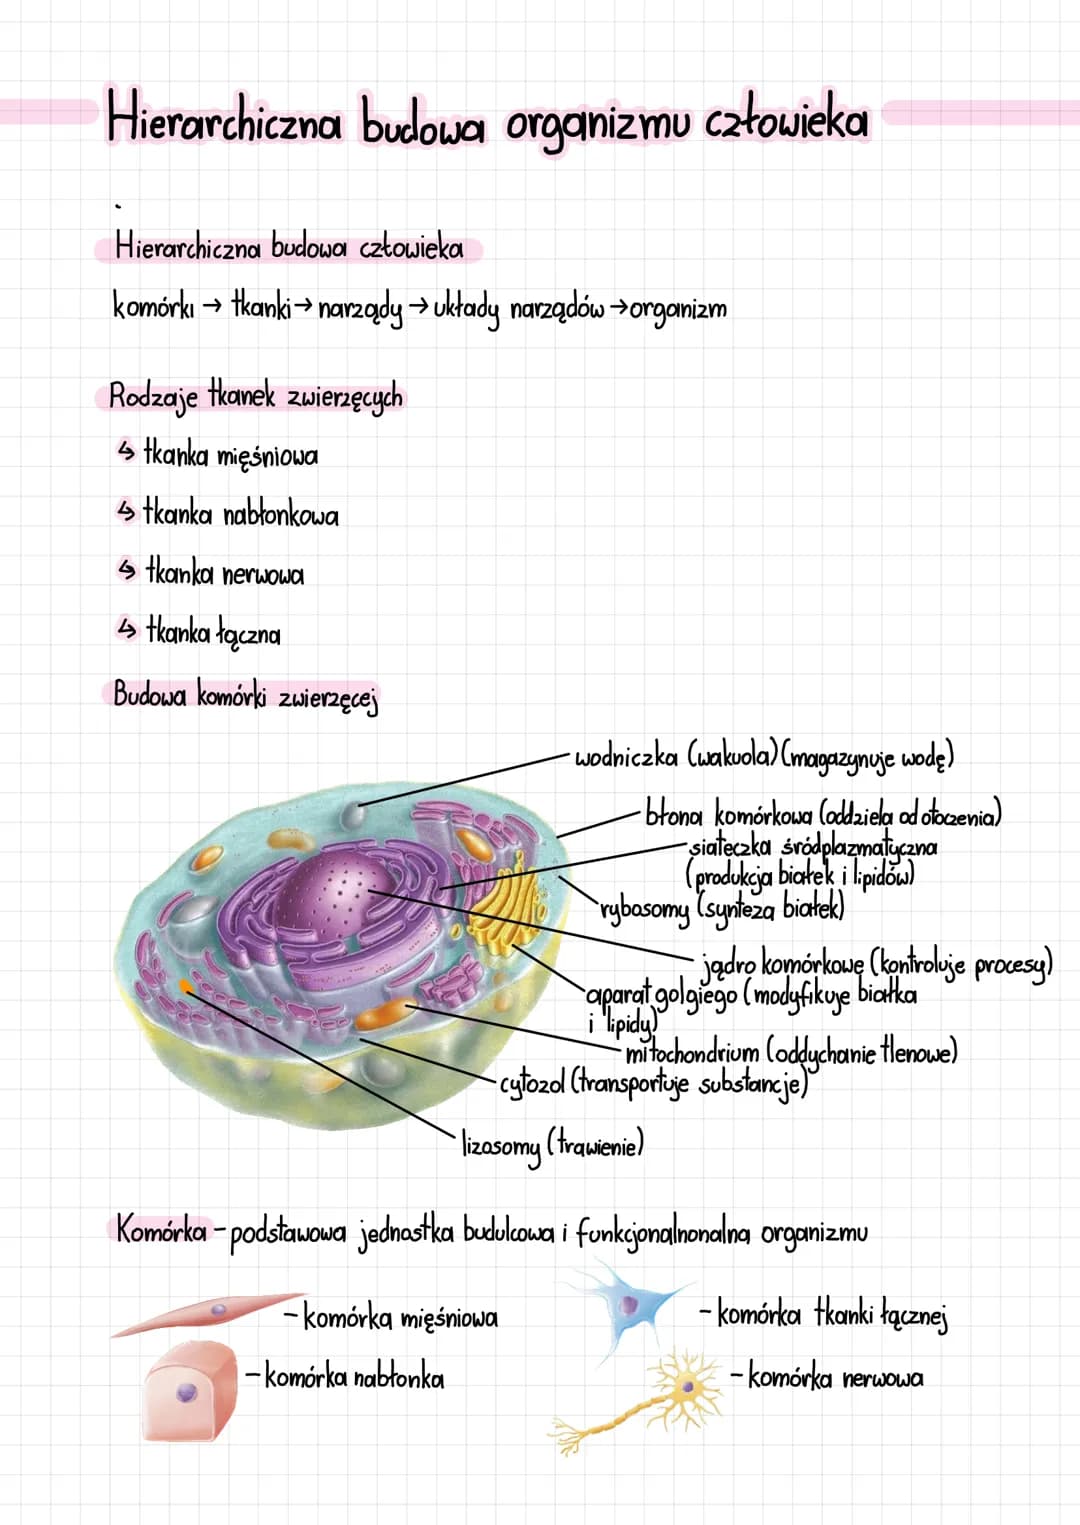 Hierarchiczna budowa organizmu człowieka
Hierarchiczna budowa człowieka
komórki → tkanki → narządy → układy narządów → organizm
Rodzaje tkanek zwierzęcych
↳ tkanka mięśniowa
↳ tkanka nabłonkowa
↳ tkanka nerwowa
↳ tkanka łączna
Budowa komórki zwierzęcej
wodniczka (wakuola) (magazynuje wodę)
błona komórkowa (oddziela od otoczenia)
siateczka śródplazmatyczna
(produkcja białek i lipidów)
rybosomy (synteza białek)
jądro komórkowe (kontroluje procesy)
aparat golgiego (modyfikuje białka
i lipidy)
mitochondrium (oddychanie tlenowe)
cytozol (transportuje substancje)
lizosomy (trawienie)
Komórka - podstawowa jednostka budulcowa i funkcjonalnonalna organizmu
- komórka mięśniowa
- komórka tkanki łącznej
- komórka nabłonka
- komórka nerwowa